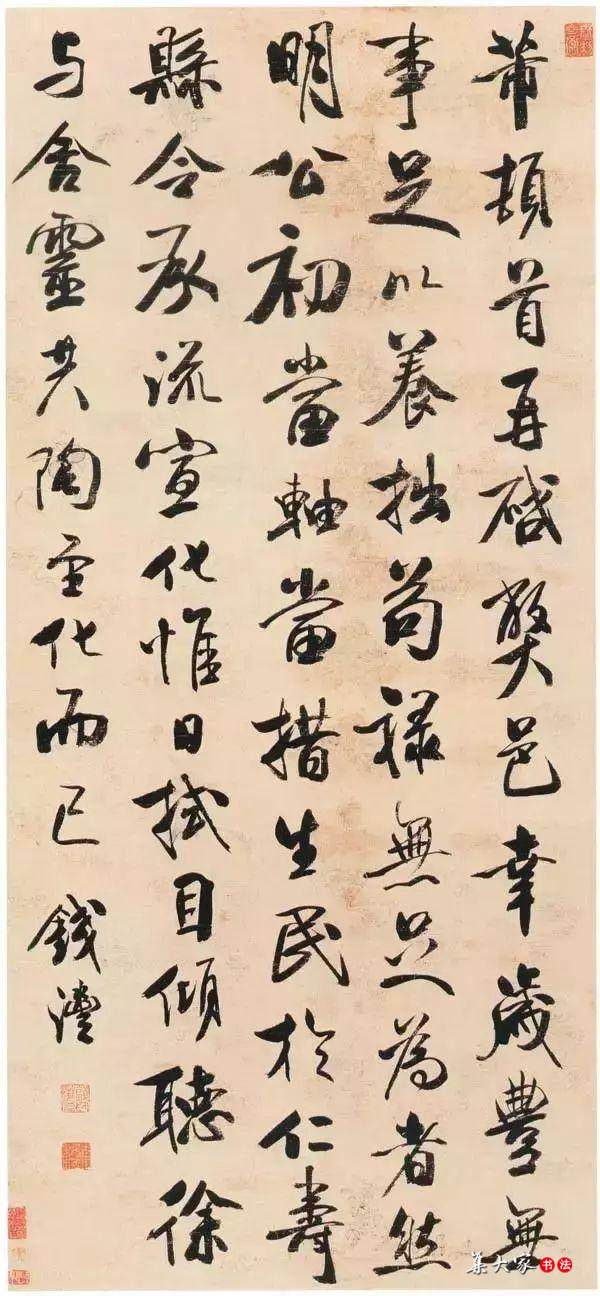 芾頓首再啓弊邑幸歲豐無
事足以養拙苟祿無足為者然
明公初當軸當措生民於仁壽
縣令承流宣化惟日拭目傾聽徐
与含靈共陶至化而已 錢灃
集大家书法